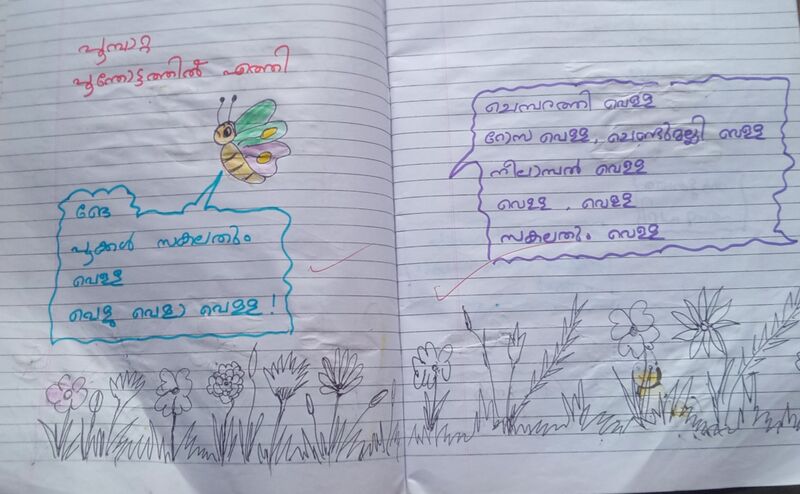 പൂമ്പാറ്റ
പൂന്തോട്ടത്തിൽ എത്തി
ങ്ങേ
പൂക്കൾ സകലതും
വെള്ള
വെള്ള വെള്ള വെള്ള !
ചെമ്പരത്തി വെള്ള
റോസ വെള്ള, ചെണ്ടുമല്ലി വെള്ള
നീലാമ്പൽ വെള്ള
വെള്ള , വെള്ള
സകലതും വെള്ള